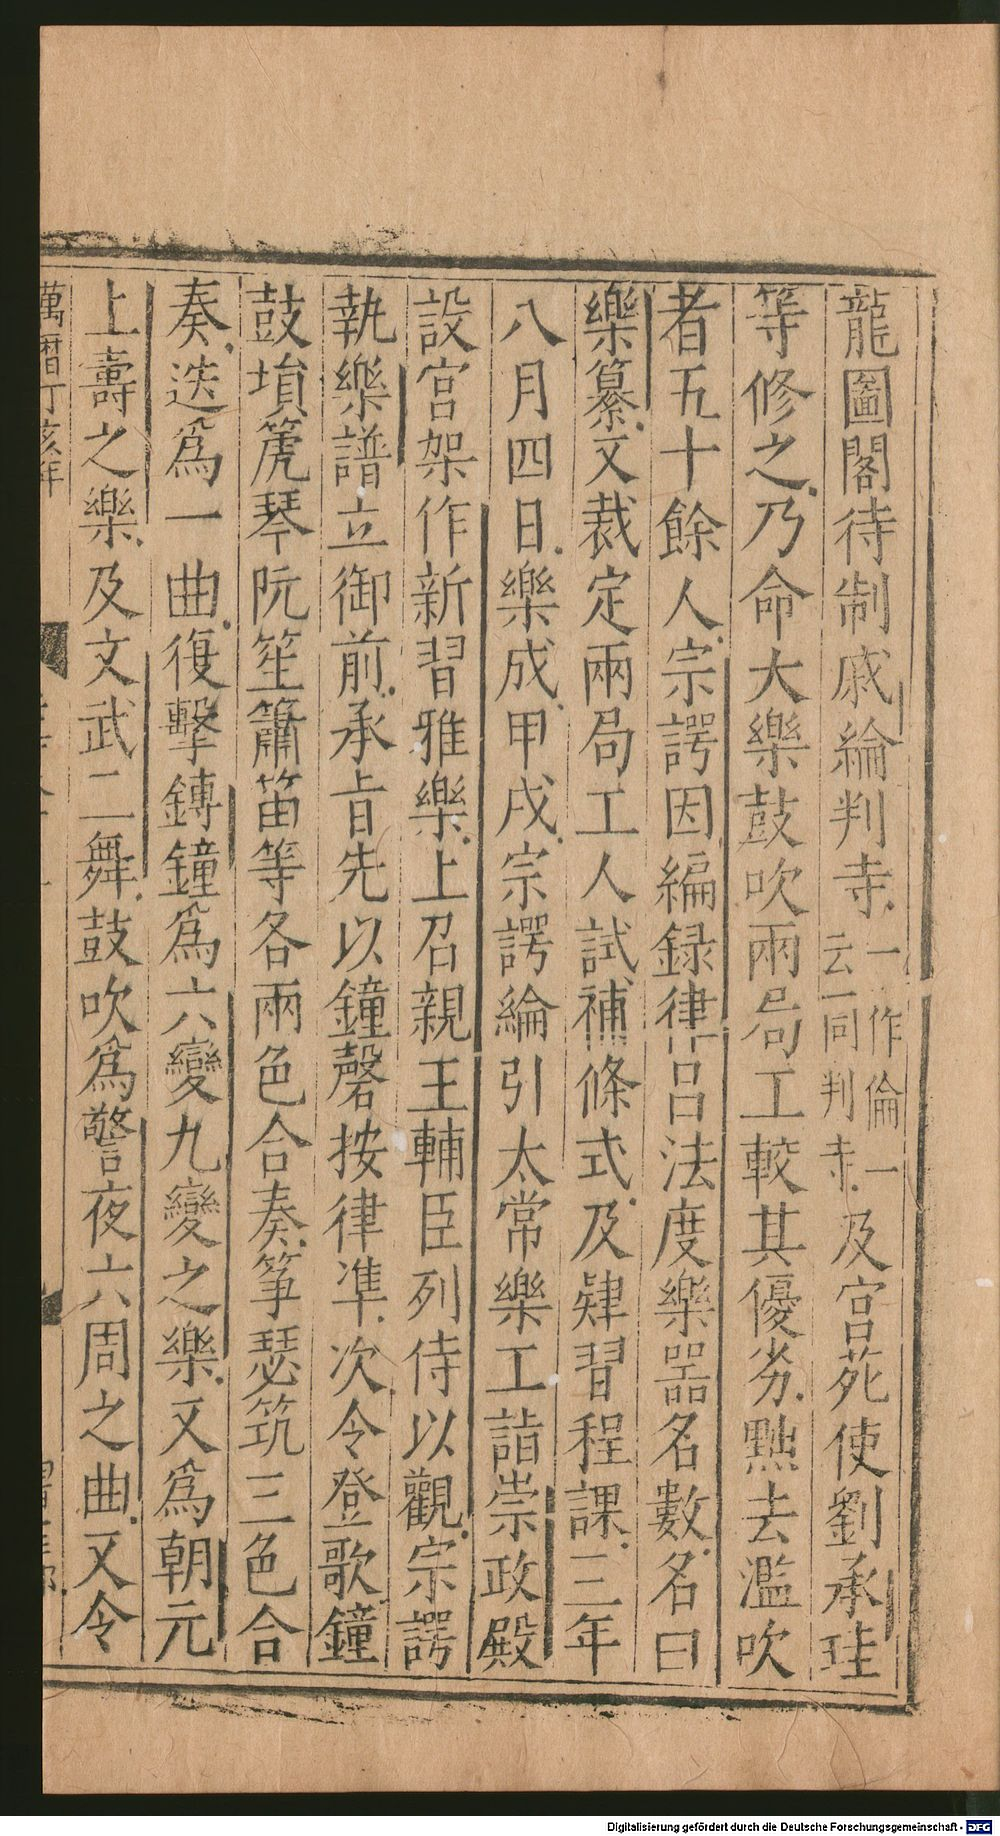 龍圖閣待制戚綸判寺一作倫一云同判寺及宫苑使劉承珪
等修之乃命大樂鼓吹兩局工較其優劣黜去濫吹
者五十餘人宗諤因編録律吕法度樂噐名數名曰
樂纂文裁定兩局工人試補條式及肄習程課三年
八月四日樂成甲戌宗諤綸引太常樂工詣崇政殿
設宫架作新習雅樂上召親王輔臣列侍以觀宗諤
執樂譜立御前承旨先以鐘磬按律凖次令登歌鐘
鼓塤箎琴阮笙簫笛等各兩色合奏筝瑟筑三色合
奏迭爲一曲復擊鏄鐘爲六變九變之樂又爲朝元
上壽之樂及文武二舞鼓吹爲警夜六周之曲又令
萬曆丁亥年
Digitalisierung gefördert durch die Deutsche Forschungsgemeinschaft - DFG